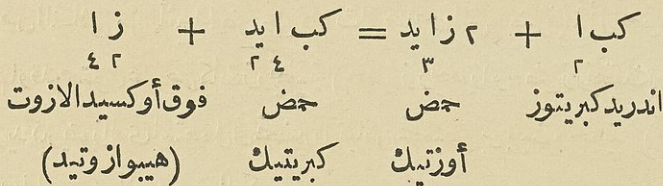 كب ا + ٢ ز ا يد = كب ا يد + ز ا
٢ ٣ ٤ ٢ ٢ ٤
اندريد كبريتوز حمض حمض فوق أوكسيد الازوت
أوزتيك كبريتيك (هيبوازوتيد)